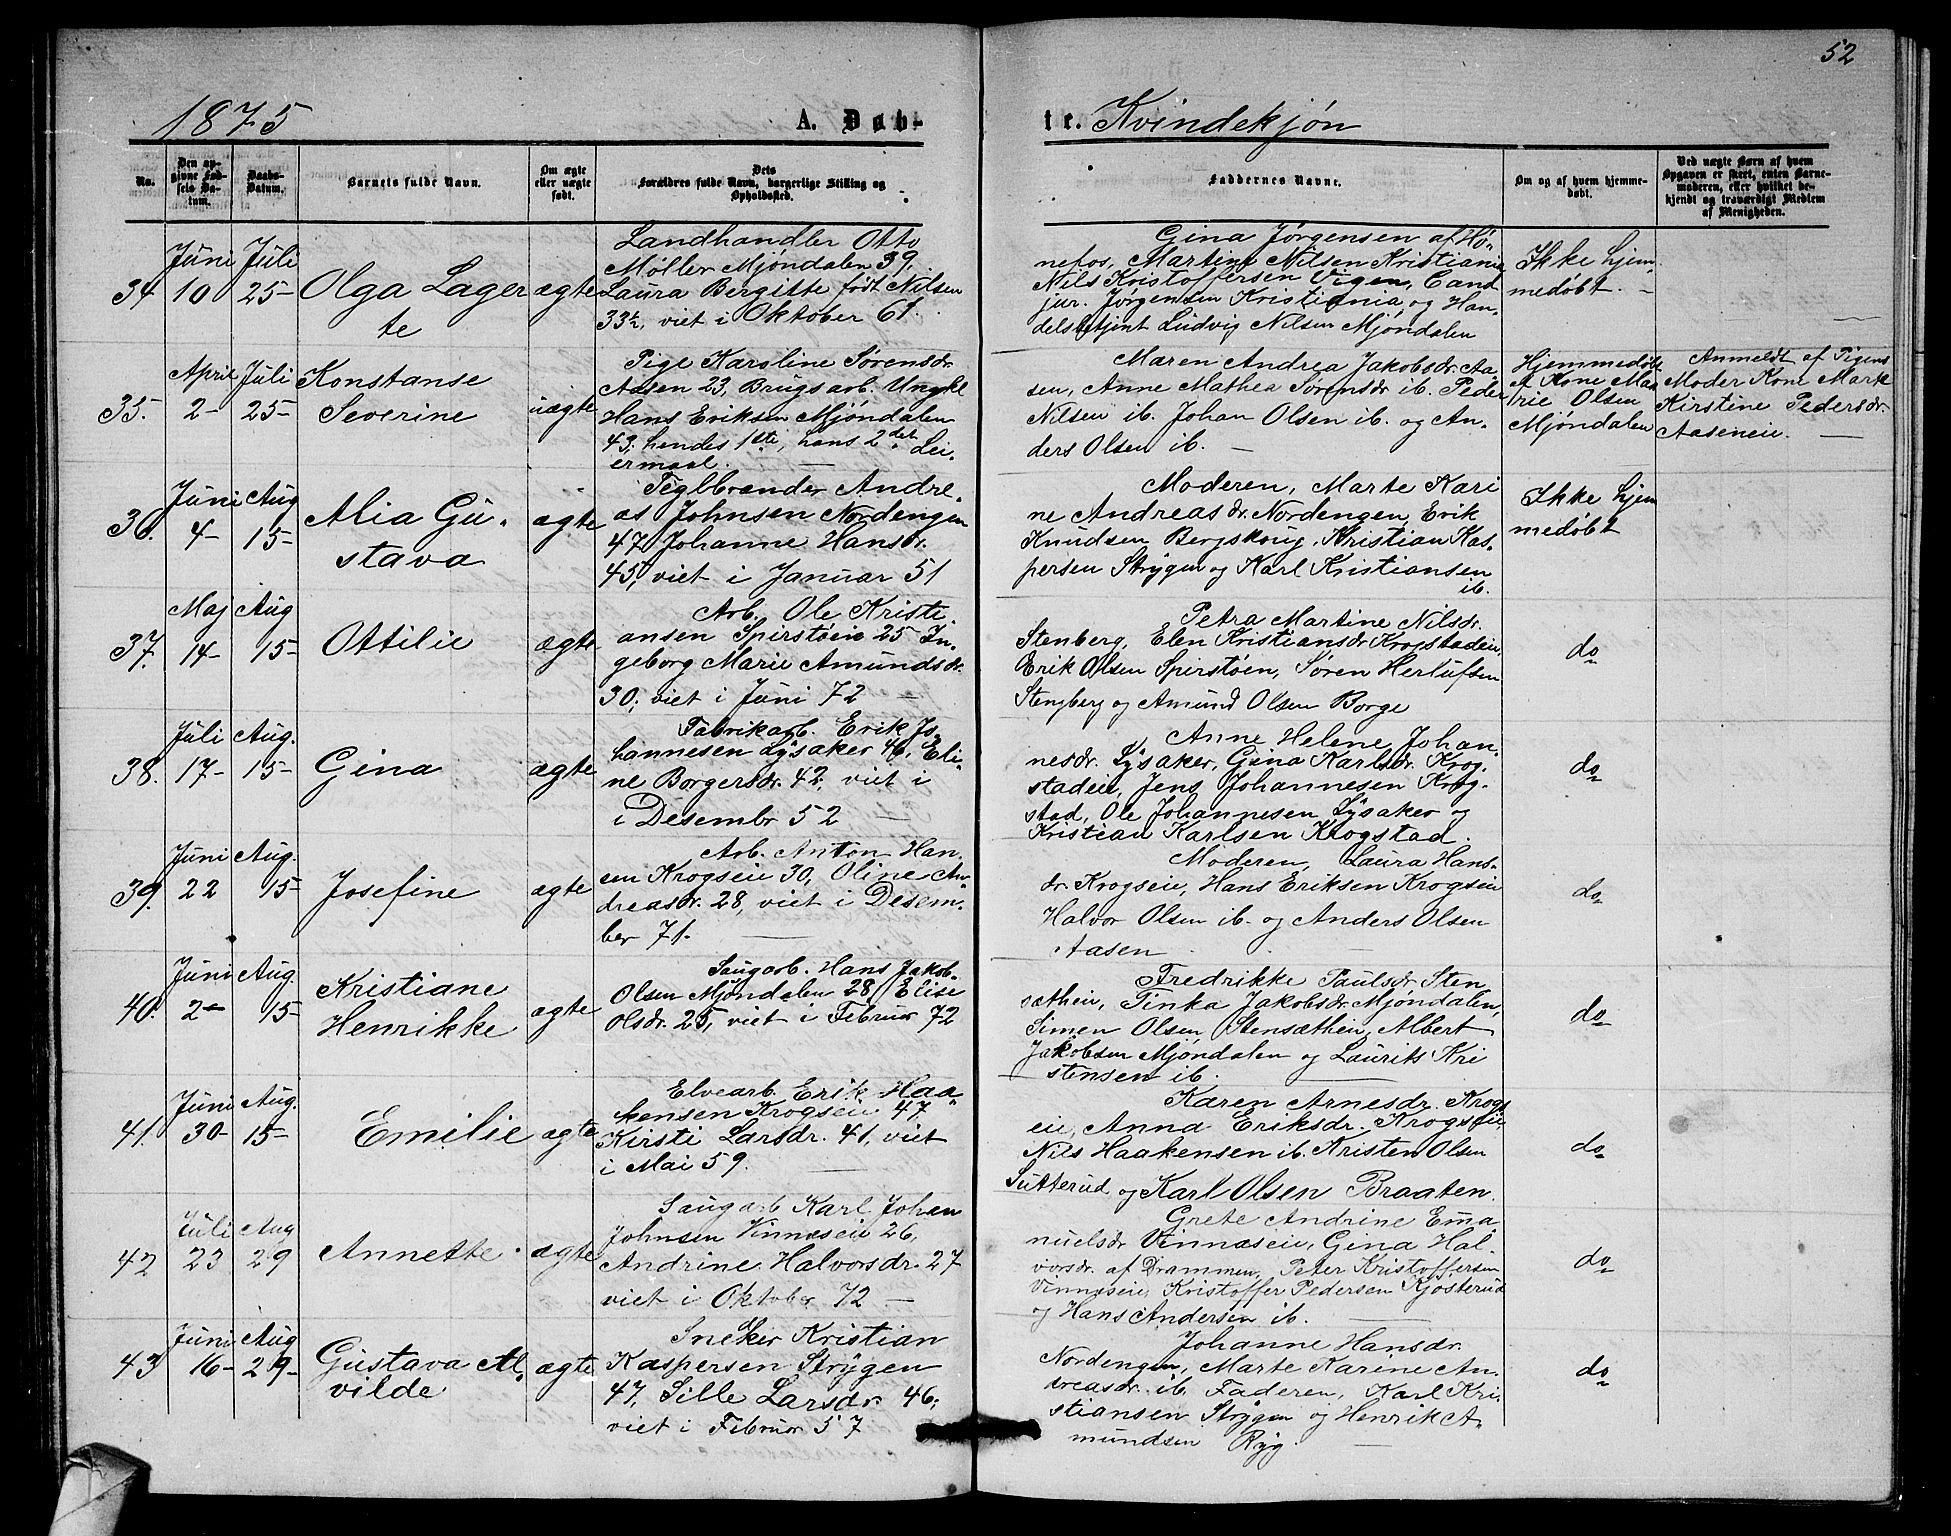 52
1875 A. Døb-
te. Kvindekjøn
No.
Den opgivne Fødsels Datum.
Daabs-Datum.
Barnets fulde Navn.
Om ægte eller uægte født.
Dets Forældres fulde Navn, borgerlige Stilling og Opholdssted.
Faddernes Navne.
Om og af hvem hjemmedøbt.
Ved uægte Børn af hvem Opgaven er skeet, enten Barnemoderen, eller hvilket bekjendt og troværdigt Medlem af Menigheden.
34 Juni 10 Juli 25- Olga Lager
te
ægte
Landhandler Otto
Møller Mjøndalen 39,
Laura Bergitte født Nilsen
33½, viet i Oktober 61.
Gina Jørgensen af Hø-
nefos, Martine Nilsen Kristiania
Nils Kristoffersen Vigen, Cand
jur. Jørgensen Kristiania, og Han-
delsbetjent Ludvig Nilsen Mjøndalen
Ikke hjem
medøbt. -
35. April 2- Juli 25- Konstanse
Severine
uægte
Pige Karoline Sørensdr.
Aasen 23, Brugsarb. Ungkl
Hans Eriksen Mjøndalen
43, hendes 1ste, hans 2det Lei-
ermaal. -
Maren Andrea Jakobsdr. Aa-
sen, Anne Mathea Sørensdr ib. Peder
Nilsen ib. Johan Olsen ib. og An-
ders Olsen ib. -
Hjemmedøbt
af Kone Ma
rie Olsen
Mjøndalen
Anmeldt af Pigens
Moder Kone Marte
Kirstine Pedersdr.
Aaseneie. -
36. Juni 4- Aug 15- Alia Gu-
stava
ægte
Teglbrænder Andre-
as Johnsen Nordengen
47, Johanne Hansdr.
45, viet i Januar 51
Moderen, Marte Kari
ne Andreasdr. Nordengen, Erik
Knudsen Bergskoug, Kristian Kas-
persen Strygen og Karl Kristiansen
ib.
Ikke hjem
medøbt
37. Maj 14- Aug 15- Ottilie
ægte
Arb. Ole Kristi-
ansen Spirstøen 25 In-
geborg Marie Amundsdr.
30; viet i Juni 72 -
Petra Martine Nilsdr.
Stenberg, Elen Kristiansdr Krogstadeie,
Erik Olsen Spirstøen, Søren Herlufsen
Stenberg og Amund Olsen Borge
do
38. Juli 17- Aug. 15- Gina
ægte
Fabrikarb. Erik Jo-
hannesen Lysaker 46, Eli-
ne Borgersdr. 42, viet i
i Desembr 52 -
Anne Helene Johan-
nesdr. Lysaker, Gina Karlsdr. Krog-
stadeie, Jens Johannesen Krog-
stad, Ole Johannesen Lysaker og
Kristian Karlsen Krogstad.
do
39. Juni 22 Aug. 15- Josefine
ægte
Arb. Anton Han-
sen Krogseie 30, Oline An-
dreasdr. 28, viet i Desem-
ber 71. -
Moderen, Laura Hans-
dr. Krogseie, Hans Eriksen Krogseie
Halvor Olsen ib. og Anders Olsen
Aasen -
do
40. Juni 2- Aug. 15- Kristiane
Henrikke
ægte
Saugarb. Hans Jakob-
Olsen Mjøndalen 28, Elise
Olsdr. 25, viet i Februr 72
Fredrikke Paulsdr. Sten
sætheie, Tinka Jakobsdr. Mjøndalen,
Simen Olsen Stensætheie, Albert
Jakobsen Mjøndalen og Laurits Kri
stensen ib.
do
41. Juni 30- Aug. 15- Emilie
ægte
Elvearb. Erik Haa-
kensen Krogseie 47
Kirsti Larsdr. 41, viet
i Mai 59.
Karen Arnesdr. Krogs
eie, Anna Eriksdr. Krogseie
Nils Haakensen ib. Kristen Olsen
Sutterud og Karl Olsen Braaten.
do
42 Juli 23 Aug 29 Annette
ægte
Saugarb Karl Johan
Johnsen Vinnæseie 26,
Andrine Halvorsdr. 27
viet i Oktober 72 -
Grete Andrine Ema
nuelsdr Vinnæseie, Gina Hal-
vorsdr. af Drammen, Peter Kristoffersen
Vinnæseie, Kristoffer Pedersen Kjøsterud
og Hans Andersen ib. -
do
43 Juni 16- Aug 29- Gustava Al-
vilde
ægte
Sneker Kristian
Kaspersen Strygen
47, Sille Larsdr. 46;
viet i Februar 57
Johanne Hansdr.
Nordengen, Marte Karine An-
dreasdr. ib. Faderen, Karl Kri-
stiansen Strygen og Henrik A-
mundsen Ryg. -
do